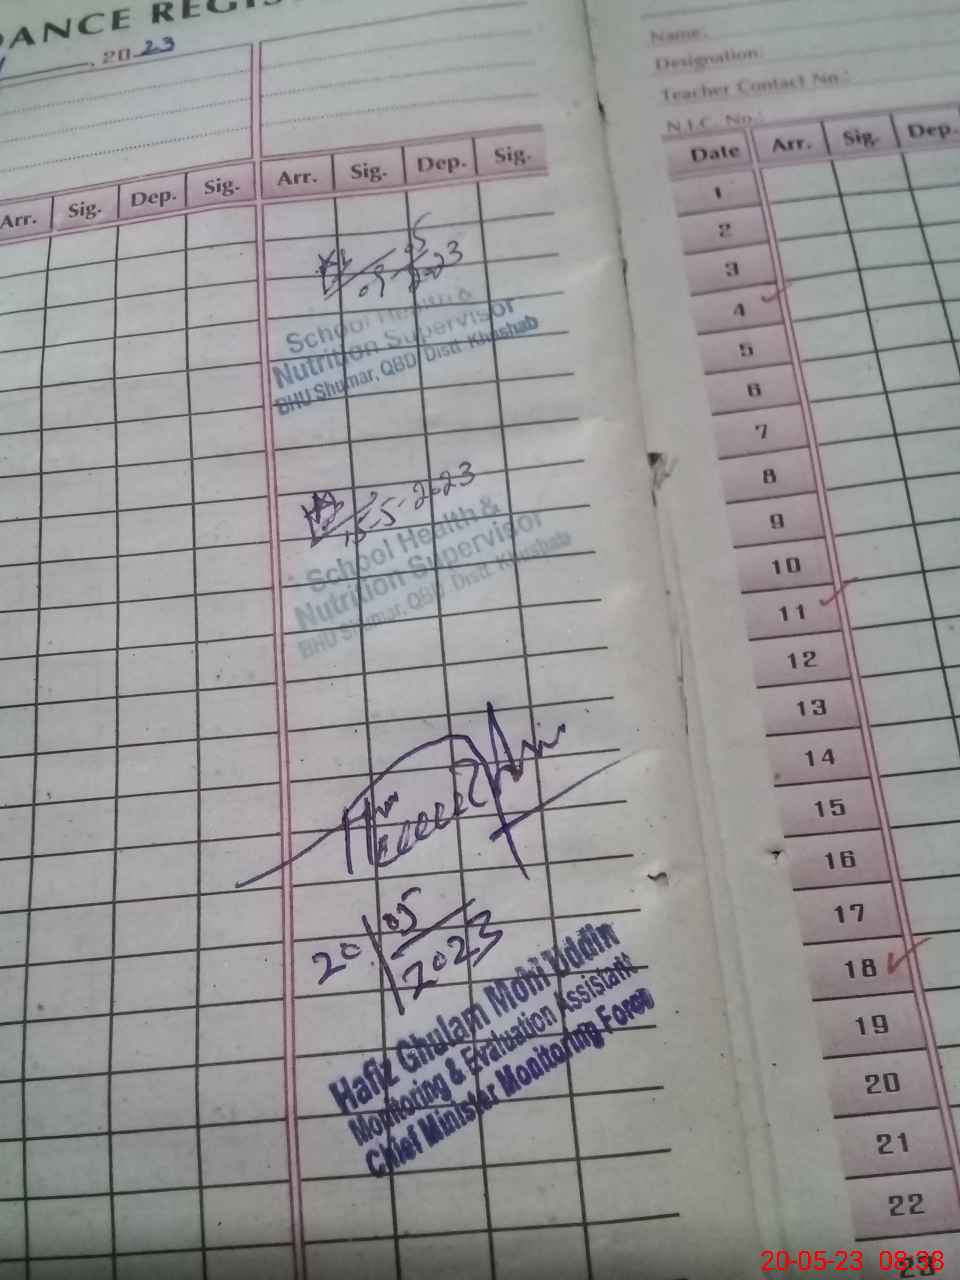 DANCE REGIS
, 20 23
Arr. Sig. Dep. Sig. Arr. Sig. Dep. Sig.
05
09 2023
School Health &
Nutrition Supervisor
BHU Shumar, QBD Distt Khushab
15-5-2023
School Health &
Nutrition Supervisor
BHU Shumar, QBD Distt Khushab
20/05
2023
Hafiz Ghulam Mohi Uddin
Monitoring & Evaluation Assistant
Chief Minister Monitoring Force
Name:
Designation:
Teacher Contact No.:
N.I.C. No.:
Date Arr. Sig. Dep.
1
2
3
4
5
6
7
8
9
10
11
12
13
14
15
16
17
18
19
20
21
22
23
20-05-23 08:38